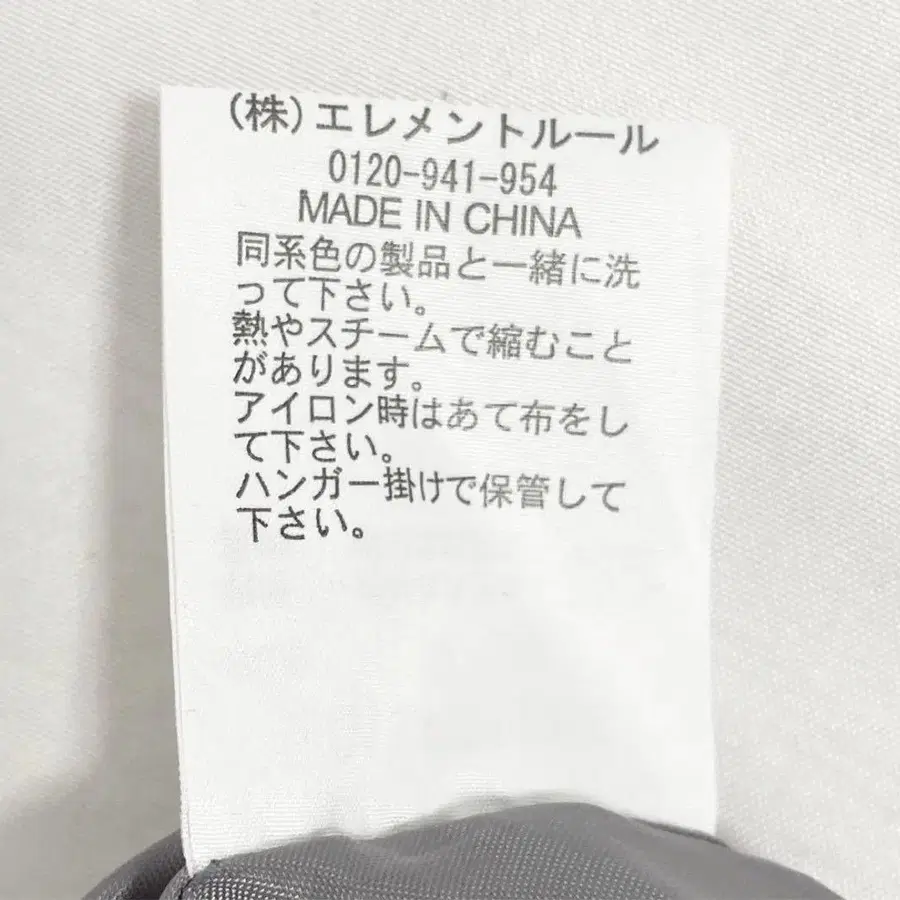 (株)エレメントルール
0120-941-954
MADE IN CHINA
同系色の製品と一緒に洗
って下さい。
熱やスチームで縮むこと
があります。
アイロン時はあて布をし
て下さい。
ハンガー掛けで保管して
下さい。